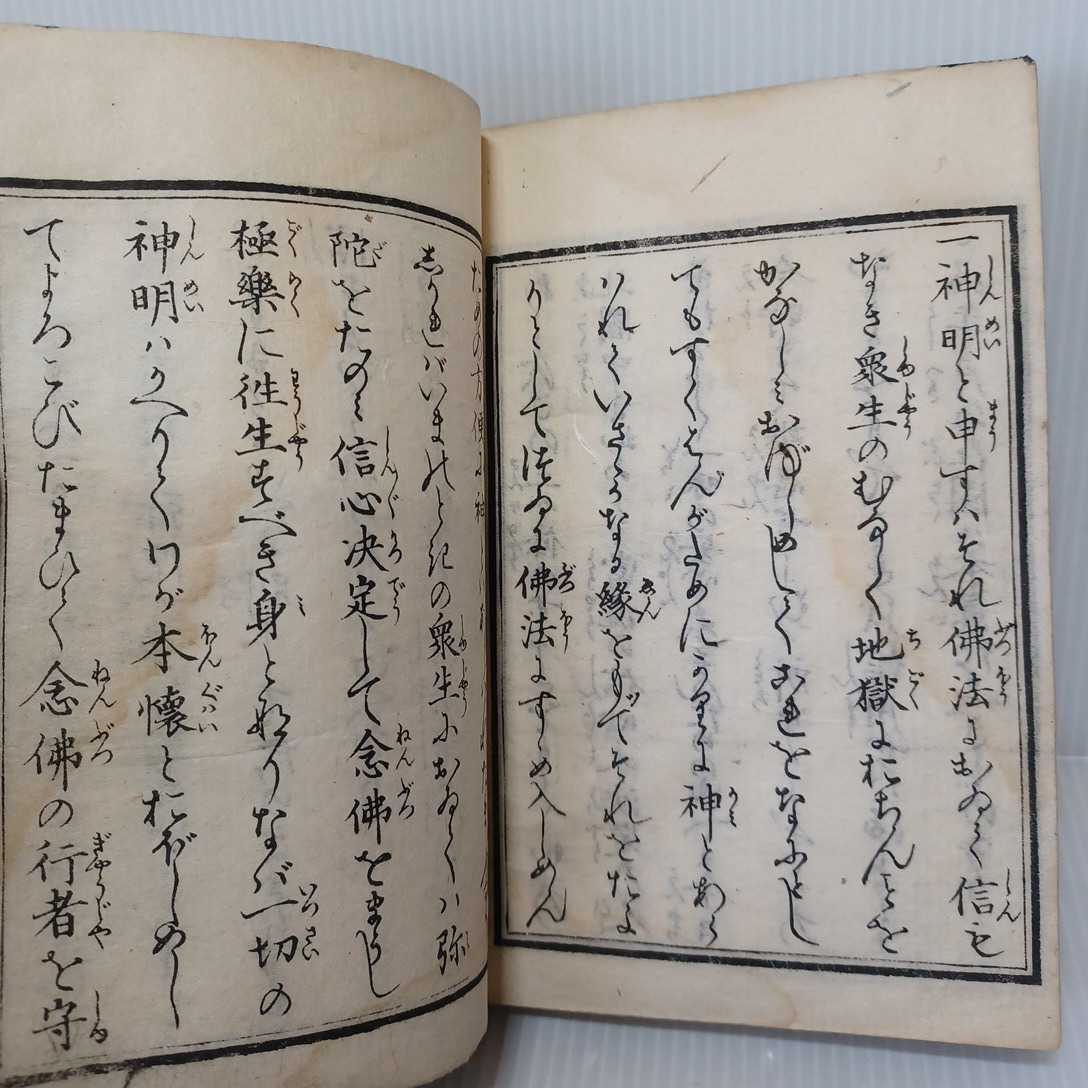 一神明と申すハそれ佛法におゐて信も
なき衆生のむなしく地獄におちんことを
かなしミおぼしめしてこれをなにとし
てもすくはんがためにかりに神とあら
ハれていさゝかなる縁をもてそれをたよ
りとしてつゐに佛法にすゝめ入しめん
ための方便に神
しかれバいまのときの衆生におゐてハ弥
陀をたのミ信心决定して念佛をまうし
極樂に往生すべき身となりなバ一切の
神明ハかへりてわが本懐とおぼしめし
てよろこびたまひて念佛の行者を守